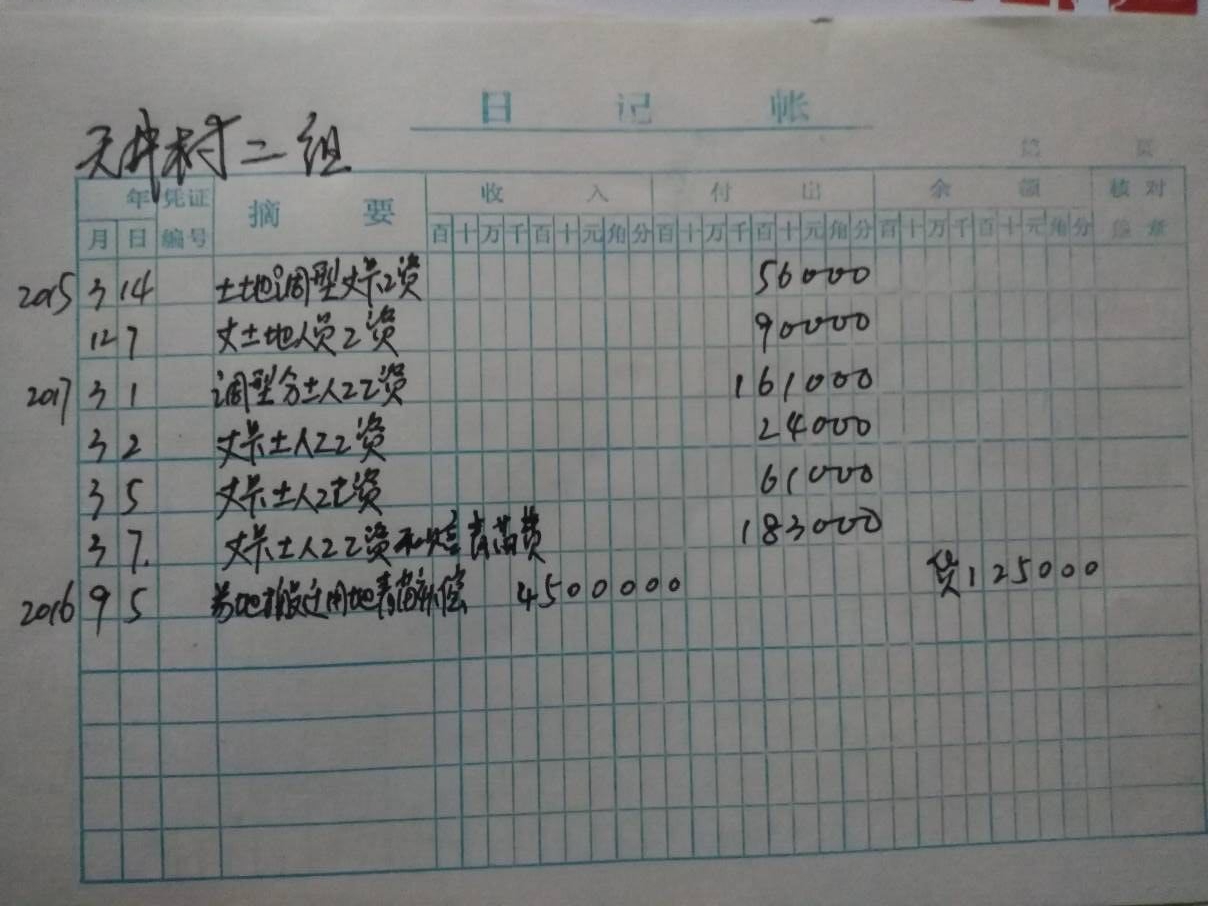 日 记 帐
天井村二组
第 页
年 凭证 摘 要 收 入 付 出 余 额 核 对
月 日 编号 百十万千百十元角分 百十万千百十元角分 百十万千百十元角分
2015 3 14 土地调型丈量工资 56000
12 7 丈土地人员工资 90000
2017 3 1 调型分土人工工资 161000
3 2 丈量土人工工资 24000
3 5 丈量土人工工资 61000
3 7. 丈量土人工工资和 青苗费 183000
2016 9 5 搬迁用地青苗补偿 4500000 货125000